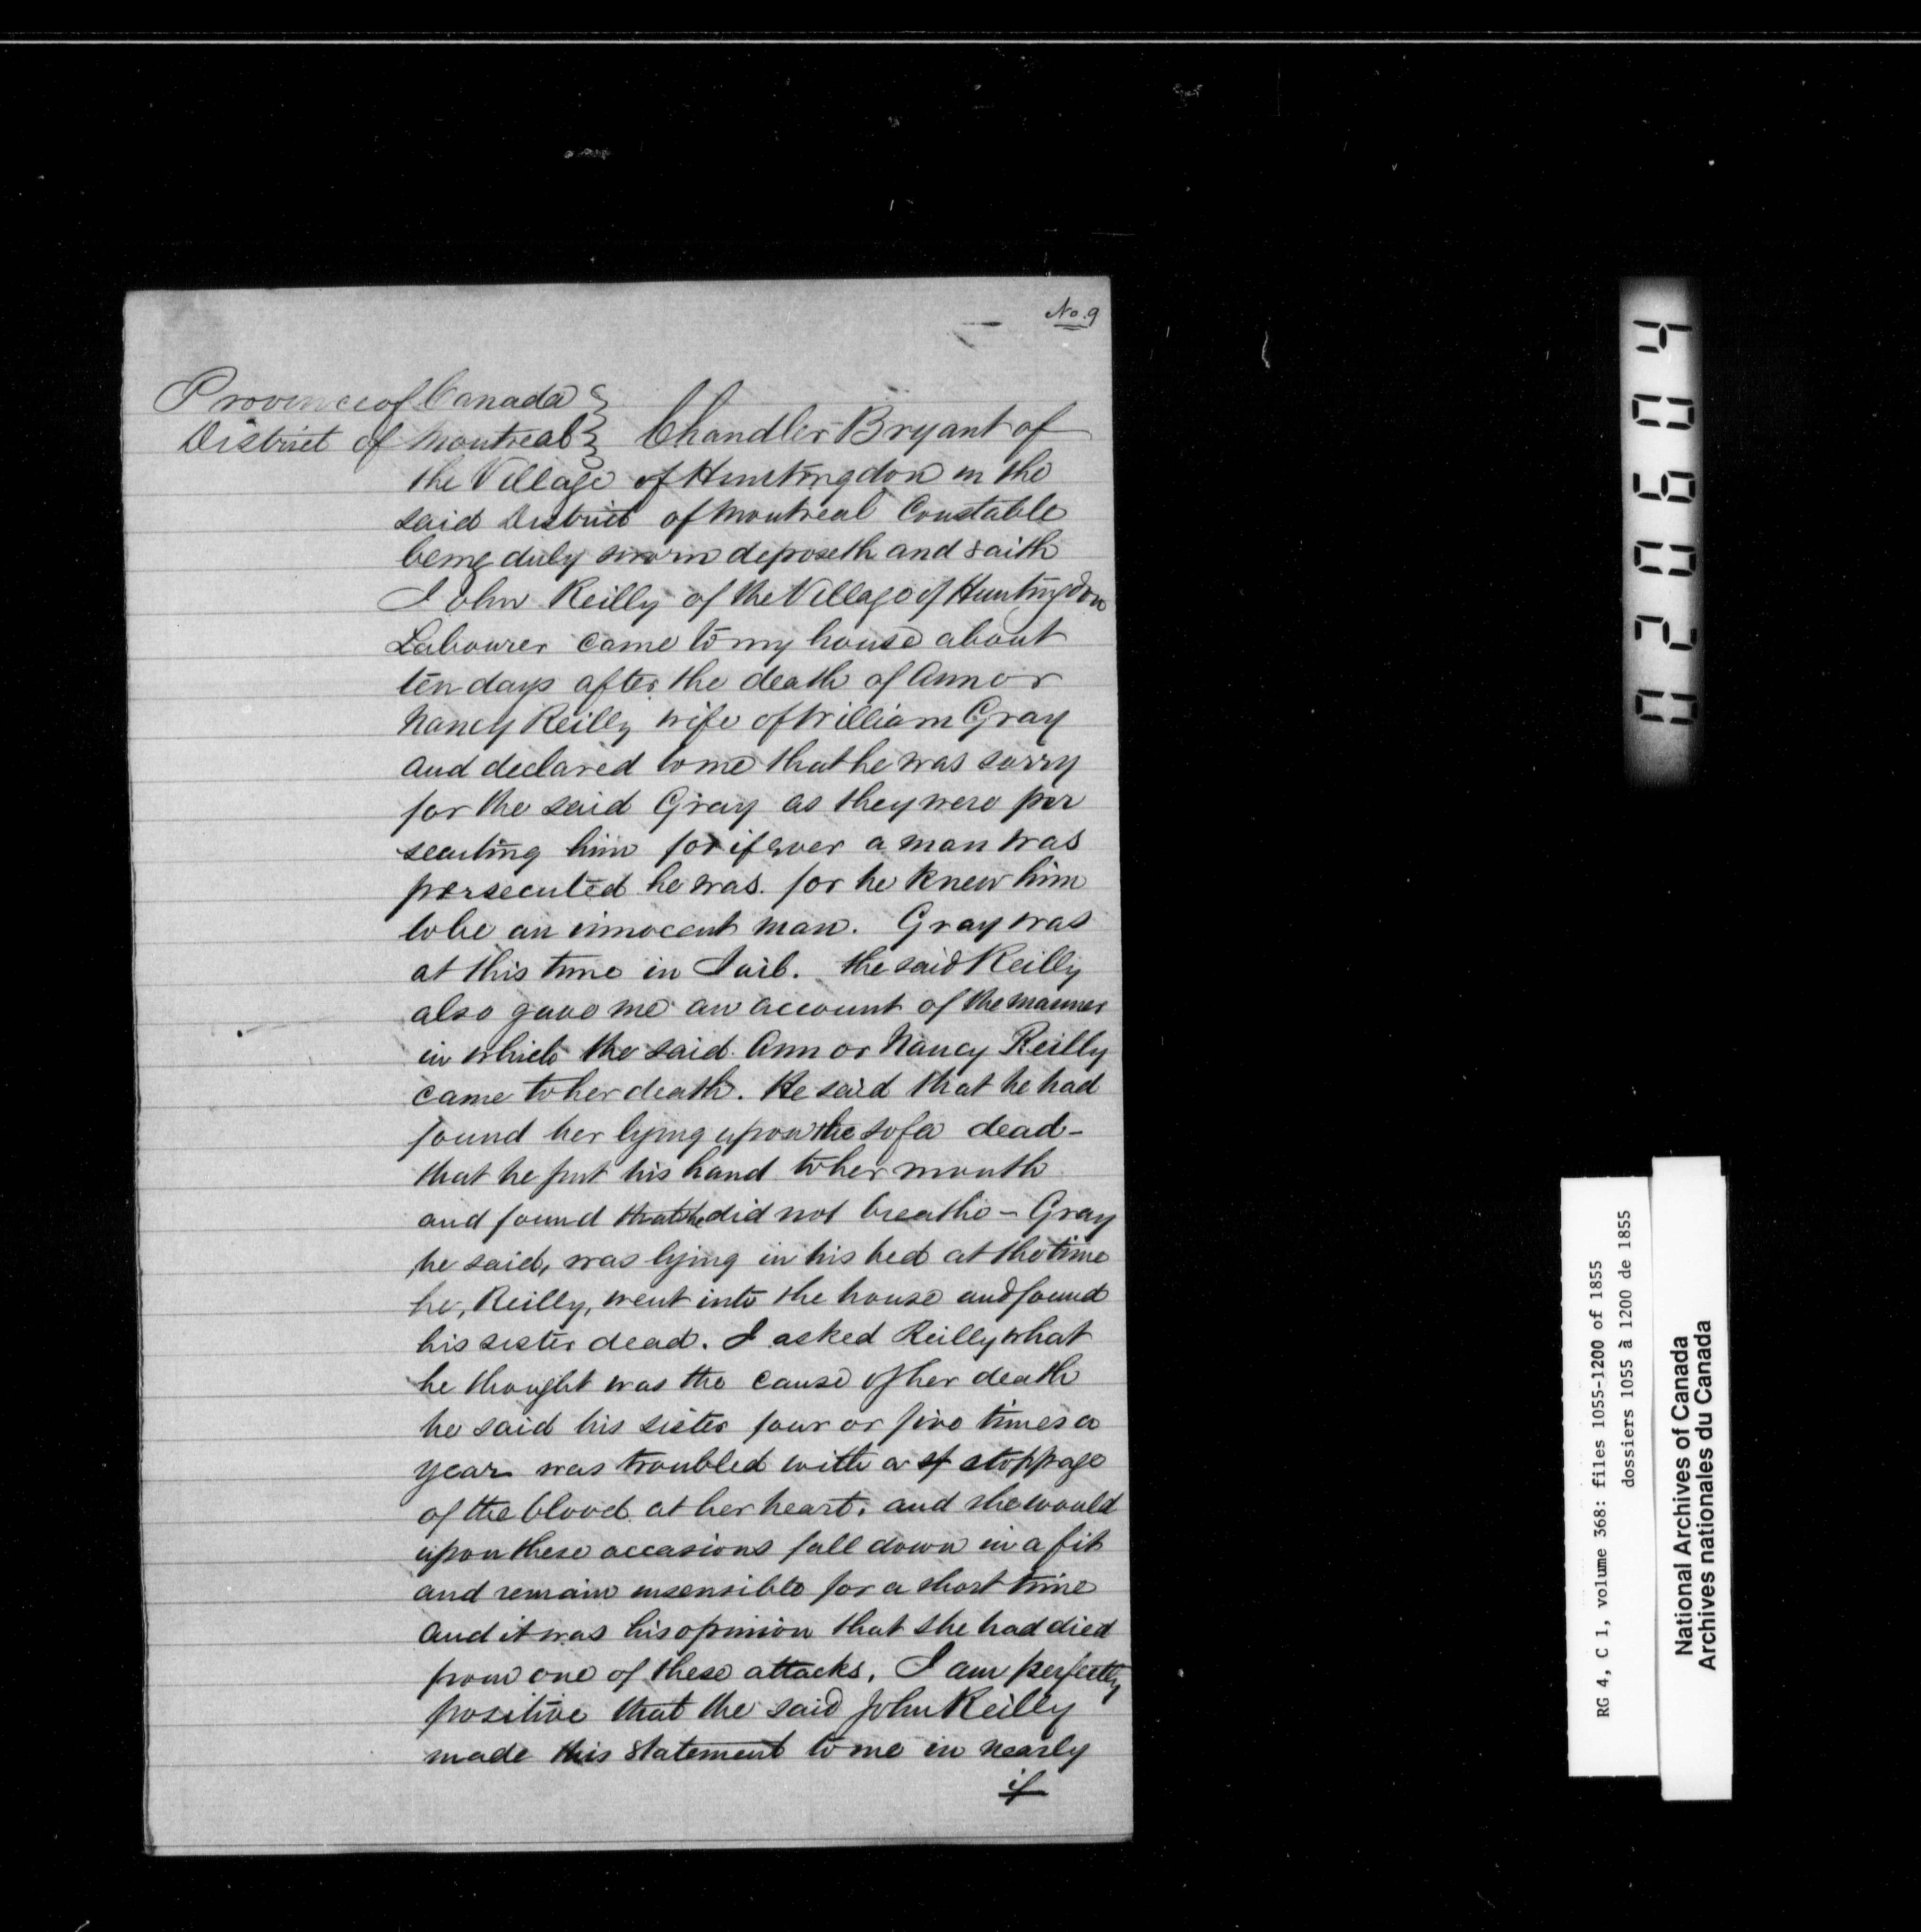 No. 9
Province of Canada }
District of Montreal } Chandler Bryant of
the Village of Huntingdon in the
said District of Montreal Constable
being duly sworn deposeth and saith
John Reilly of the Village of Huntingdon
Labourer came to my house about
ten days after the death of Ann or
Nancy Reilly wife of William Gray
and declared to me that he was sorry
for the said Gray as they were per
secuting him for if ever a man was
persecuted he was. for he knew him
to be an innocent man. Gray was
at this time in Jail. the said Reilly
also gave me an account of the manner
in which the said Ann or Nancy Reilly
came to her death. He said that he had
found her lying upon the sofa dead -
that he put his hand to her mouth
and found that she did not breathe - Gray
he said, was lying in his bed at the time
he, Reilly, went into the house and found
his sister dead. I asked Reilly what
he thought was the cause of her death
he said his sister four or five times a
year was troubled with a st stoppage
of the blood at her heart, and she would
upon these occasions fall down in a fit
and remain insensible for a short time
and it was his opinion that she had died
from one of these attacks. I am perfectly
positive that the said John Reilly
made this statement to me in nearly
if
020604
RG 4, C 1, volume 368: files 1055-1200 of 1855
dossiers 1055 à 1200 de 1855
National Archives of Canada
Archives nationales du Canada